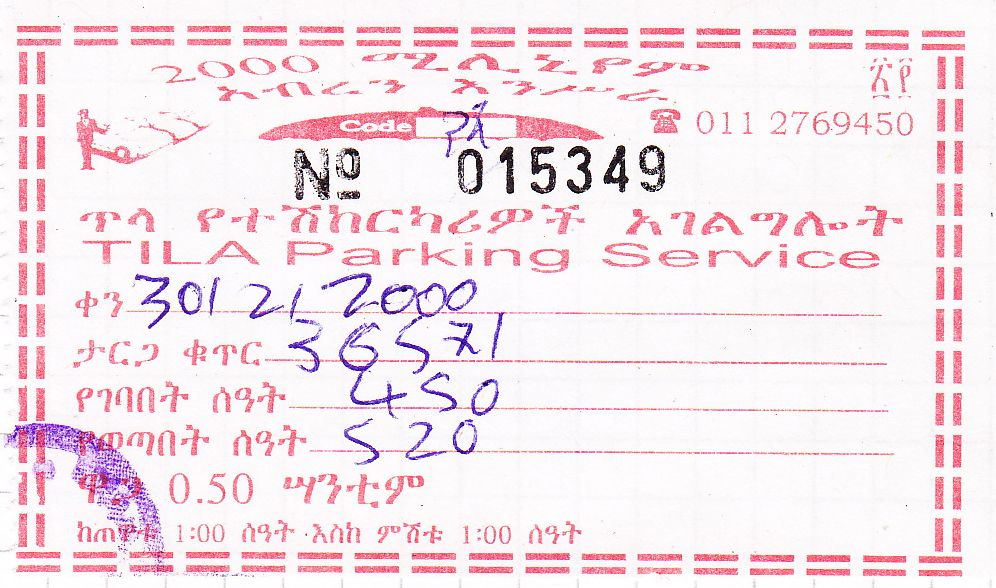 2000 ሚሊኒየም
አብረን እንሥራ
አየ
Code
☎ 011 2769450
№ 015349
ጥላ የተሽከርካሪዎች አገልግሎት
TILA Parking Service
ቀን 30/2/2000
ታርጋ ቁጥር 36571
የገባበት ሰዓት 450
የወጣበት ሰዓት 520
ዋጋ 0.50 ሣንቲም
ከጠዋቱ 1:00 ሰዓት እስከ ምሽቱ 1:00 ሰዓት